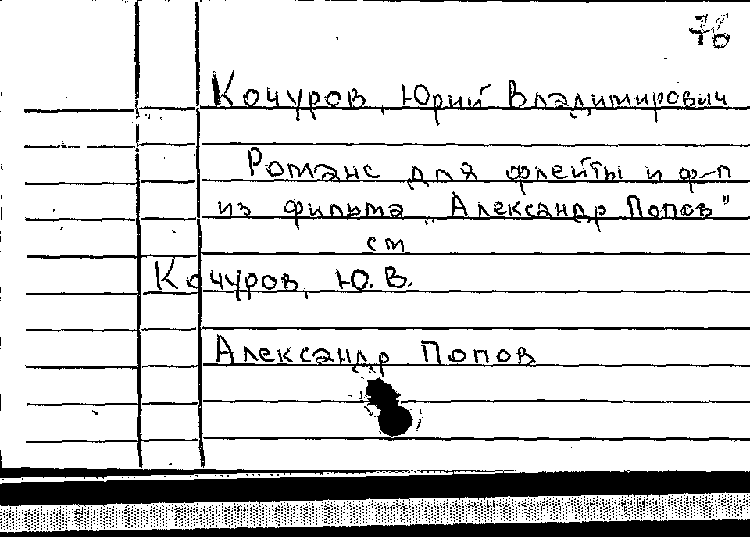 76
Кочуров, Юрий Владимирович
Романс для флейты и ф-п
из фильма „Александр Попов"
см
Кочуров, Ю. В.
Александр Попов